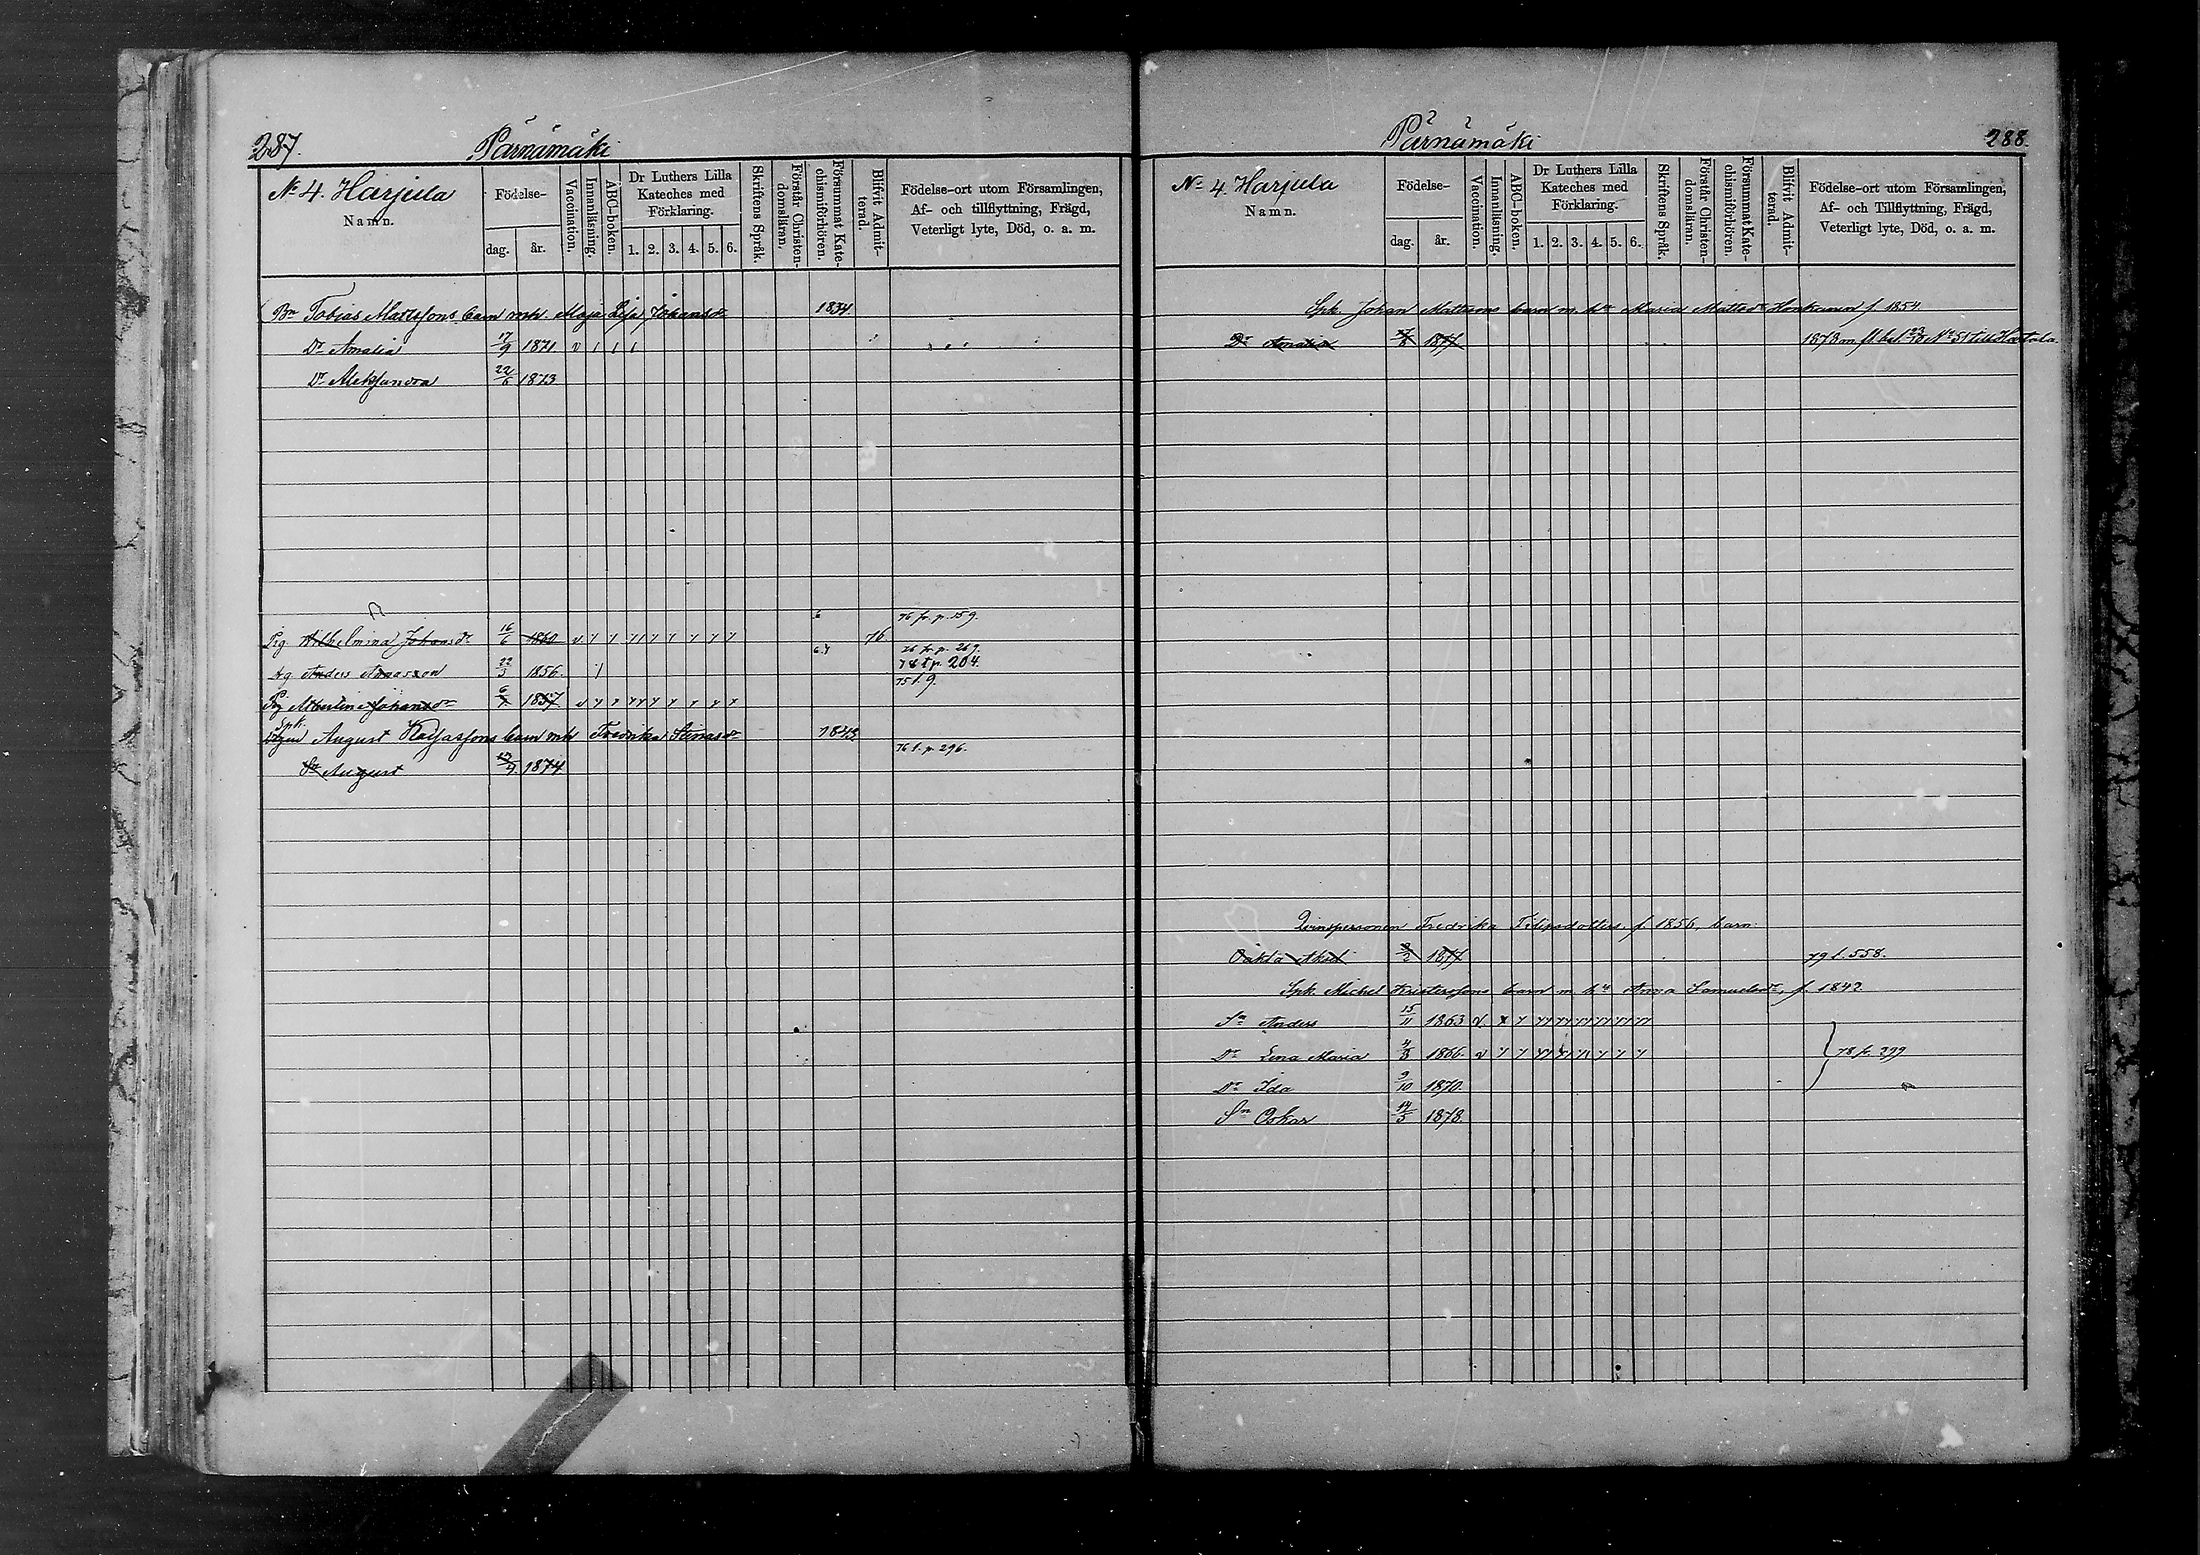 287.
Pärnämäki
Nº 4. Harjula
Namn.
Födelse-
dag.
år.
Vaccination.
Innanläsning.
ABC-boken.
Dr Luthers Lilla Kateches med Förklaring.
1. 2. 3. 4. 5. 6.
Skriftens Språk.
Förstår Christen-domsläran.
Försummat Kate-chismiförhören.
Blifvit Admit-terad.
Födelse-ort utom Församlingen,
Af- och tillflyttning, Frägd,
Veterligt lyte, Död, o. a. m.
Bn Tobias Mattssons barn mh. Maja Lisa Johansdr 1834
Dr Amalia 17/9 1871
Dr Aleksandra 22/6 1873
6 76 fr. p. 159.
Pig Wilhelmina Johansdr 16/6 1860 76
26 fr. p. 269.
Dg Anders 22/3 1856. 78 t p. 204.
75 t. 9.
Pig Johansdr 1857
Spk.
August barn mh Fredrika 1843
76 t. p. 296.
Sn August 1874
Pärnämäki
288.
Nº 4. Harjula
Namn.
Födelse-
dag.
år.
Vaccination.
Innanläsning.
ABC-boken.
Dr Luthers Lilla Kateches med Förklaring.
1. 2. 3. 4. 5. 6.
Skriftens Språk.
Förstår Christen-domsläran.
Försummat Kate-chismiförhören.
Blifvit Admit-terad.
Födelse-ort utom Församlingen,
Af- och Tillflyttning, Frägd,
Veterligt lyte, Död, o. a. m.
Spk. Johan Mattsons barn m. h. Maria Mattsdr f. 1854.
Dr Amalia 1877 Nº 51 till
Qvinspersonen Fredrika Filipsdotters, f. 1856, barn:
Oäkta Aksel 1877 79 t. 558.
Spk. Michel Kristerssons barn m. h. Anna Samuelsdr, f. 1842
Sn Anders 15/11 1863
Dr Lena Maria 4/3 1866. 78 fr. 299
Dr Ida 9/10 1870.
Sn Oskar 14/5 1878.